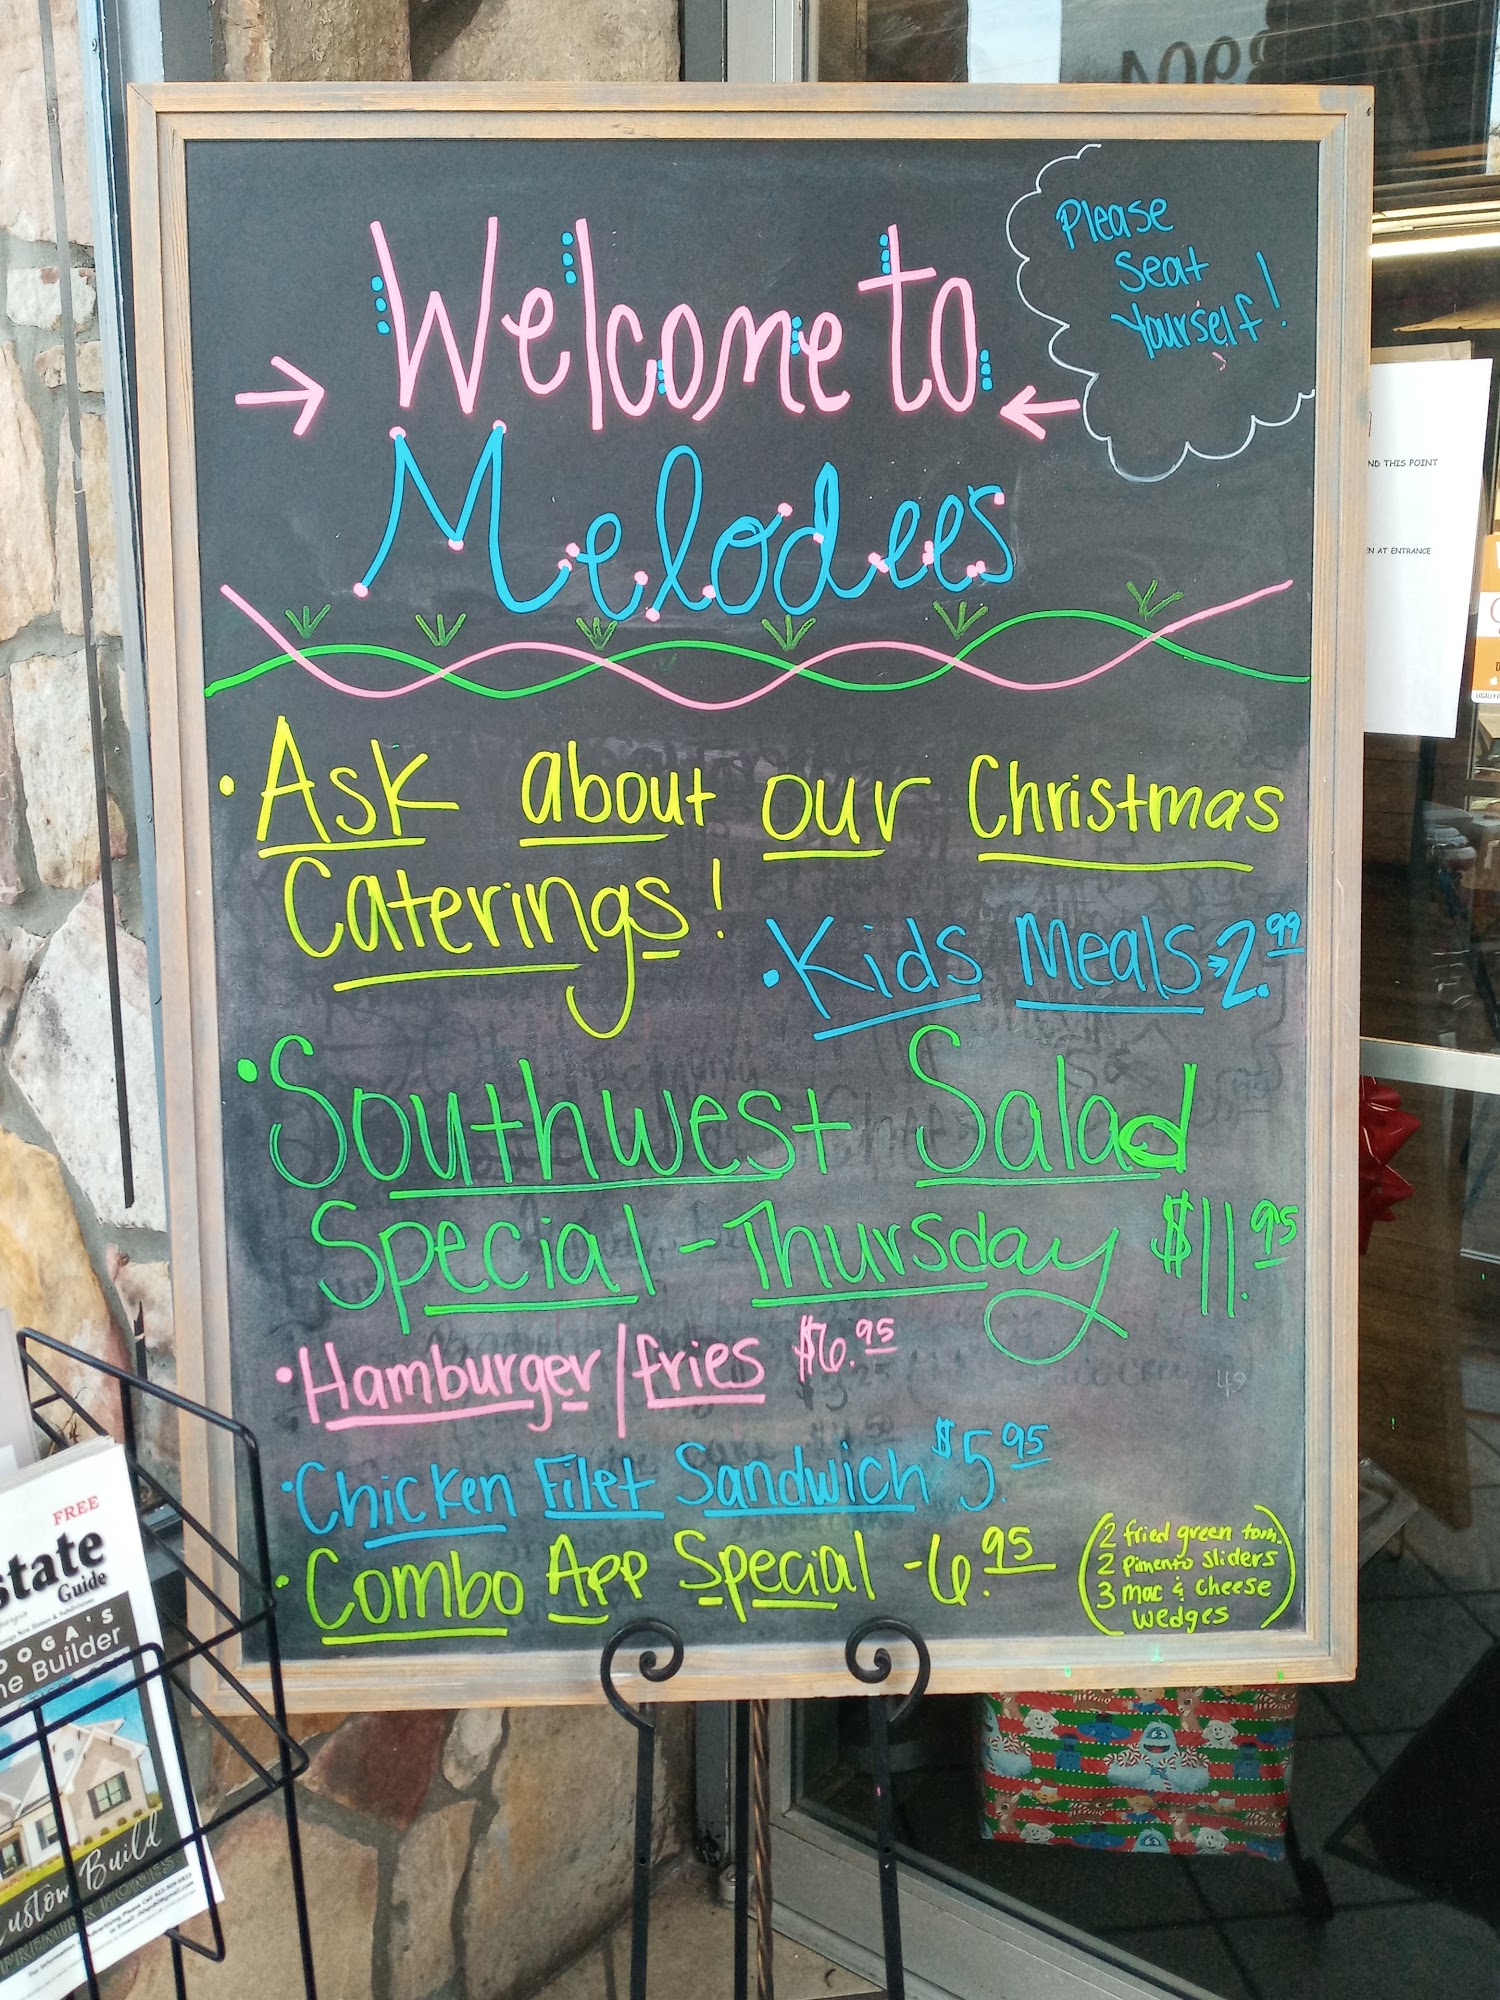 Welcome to
Melodees
Please
Seat
Yourself!
• Ask about our Christmas
Caterings!
• Kids Meals → 2.99
• Southwest Salad
Special - Thursday $11.95
• Hamburger/fries $6.95
• Chicken Filet Sandwich $5.95
• Combo App Special - 6.95
(2 fried green tom.
2 Pimento Sliders
3 mac & cheese
wedges)
ND THIS POINT
EN AT ENTRANCE
FREE
state
Guide
OOGA'S
ne Builder
Custom Build